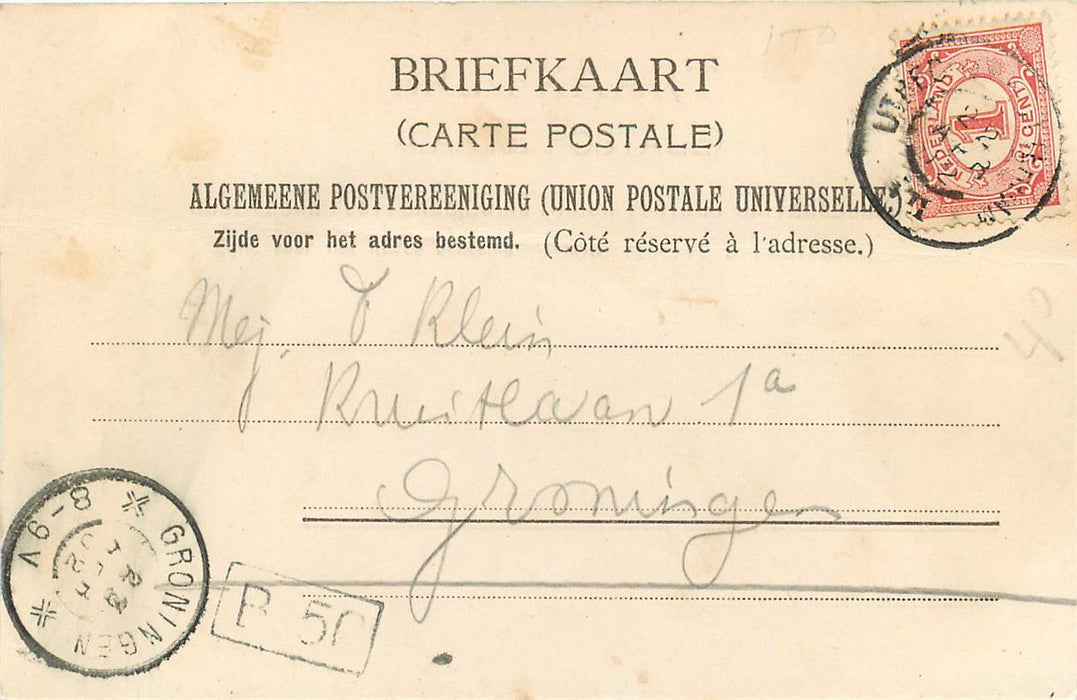 BRIEFKAART
(CARTE POSTALE)
ALGEMEENE POSTVEREENIGING (UNION POSTALE UNIVERSELLE)
Zijde voor het adres bestemd. (Côté réservé à l'adresse.)
NEDERLAND
1
CENT
UTRECHT
Mej. F Klein
Kruitlaan 1a
Groningen
GRONINGEN
8-9V
B 50